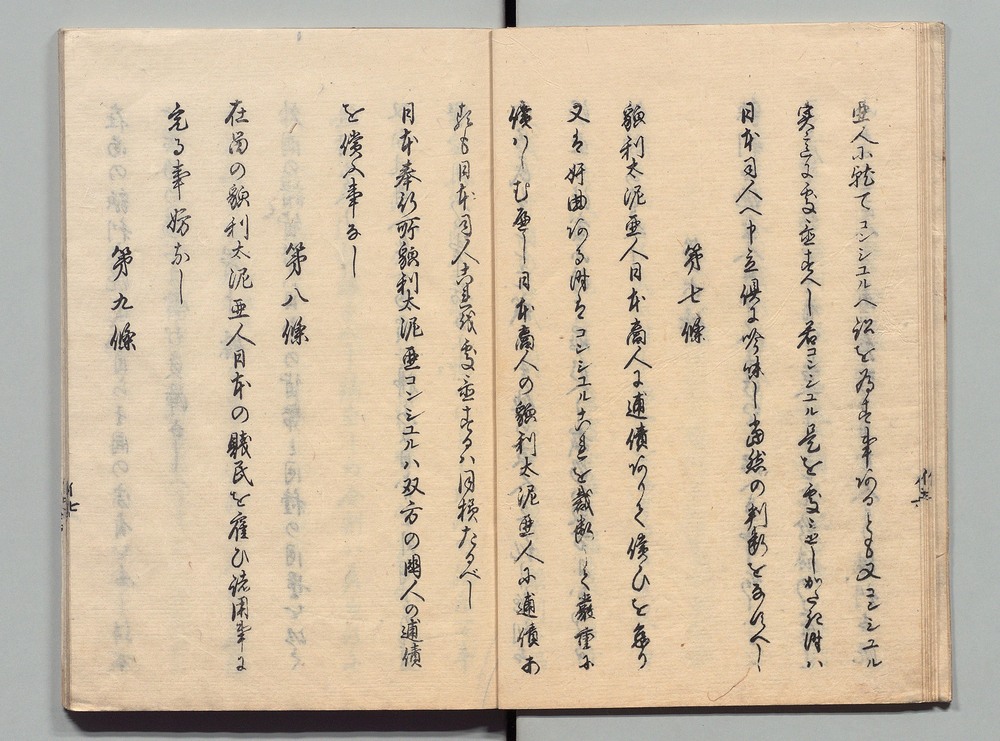 亜人に就てコンシュルへ訟を為す事あるとも又コンシュル
実意に處置すへし若コンシュル是を處置しかたき時ハ
日本司人へ申立倶に吟味し当然の判断をなすへし
第七條
貌利太泥亜人日本商人に逋債ありて償ひを怠り
又は奸曲ある時はコンシュル是を裁断して厳重に
償ハしむへし日本商人の貌利太泥亜人に逋債あ
るも日本司人是を處置するハ同様たるへし
日本奉行所貌利太泥亜コンシュルハ双方の国人の逋債
を償ふ事なし
第八條
在留の貌利太泥亜人日本の賤民を雇ひ諸用事に
充る事妨なし
第九條